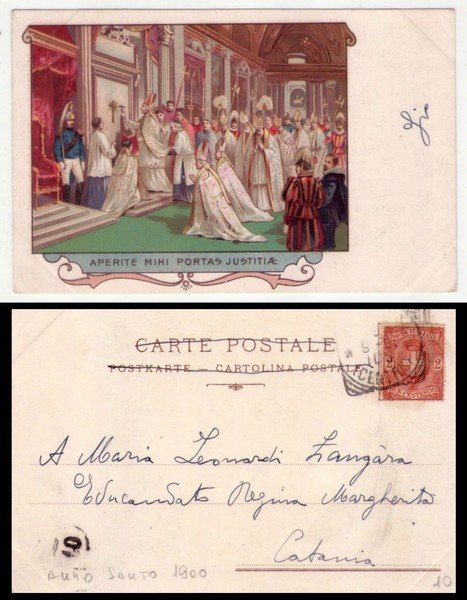 Zio
APERITE MIHI PORTAS JUSTITIÆ
CARTE POSTALE
POSTKARTE — CARTOLINA POSTALE
2 2
A Maria Leonardi Zangàra
Educandato Regina Margherita
Catania
ANNO SANTO 1900
10